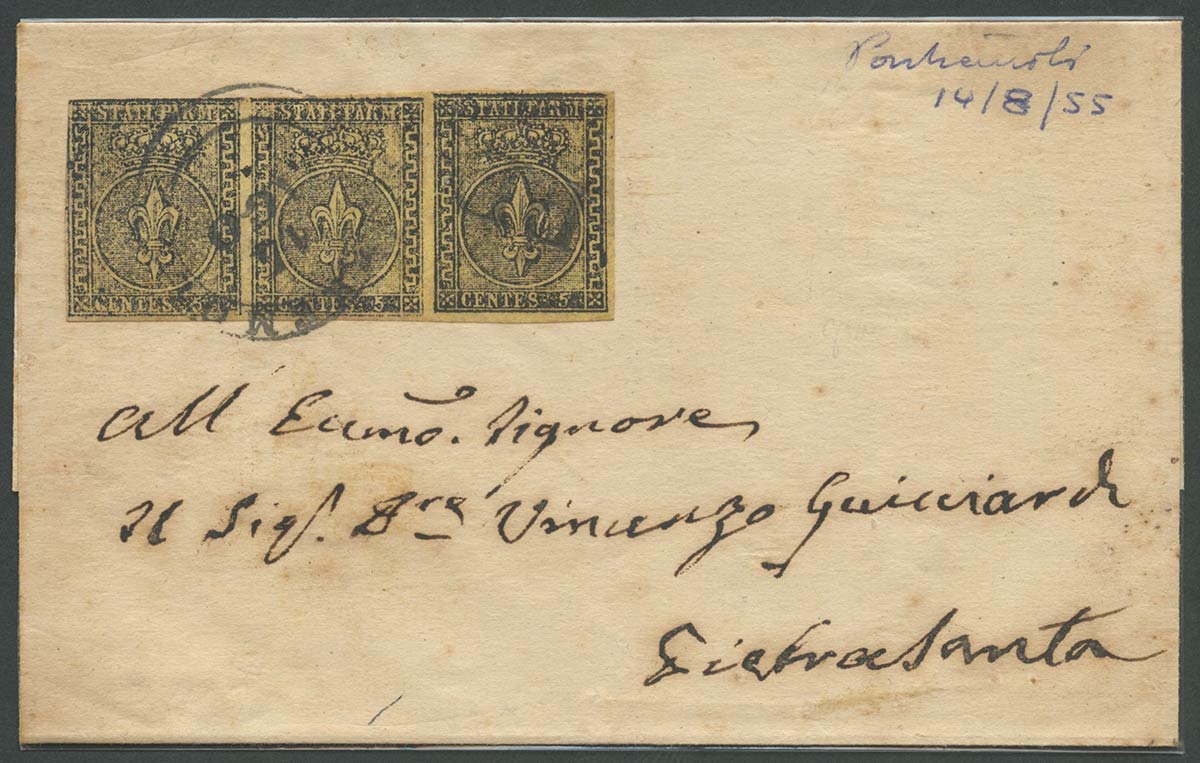 Pontremoli
14/8/55
STATI PARM STATI PARM STATI PARM
CENTES. 5 CENTES. 5 CENTES. 5
All Ecc̃mo. Signore
Il Sigr. Dre Vincenzo Guicciardi
Pietrasanta